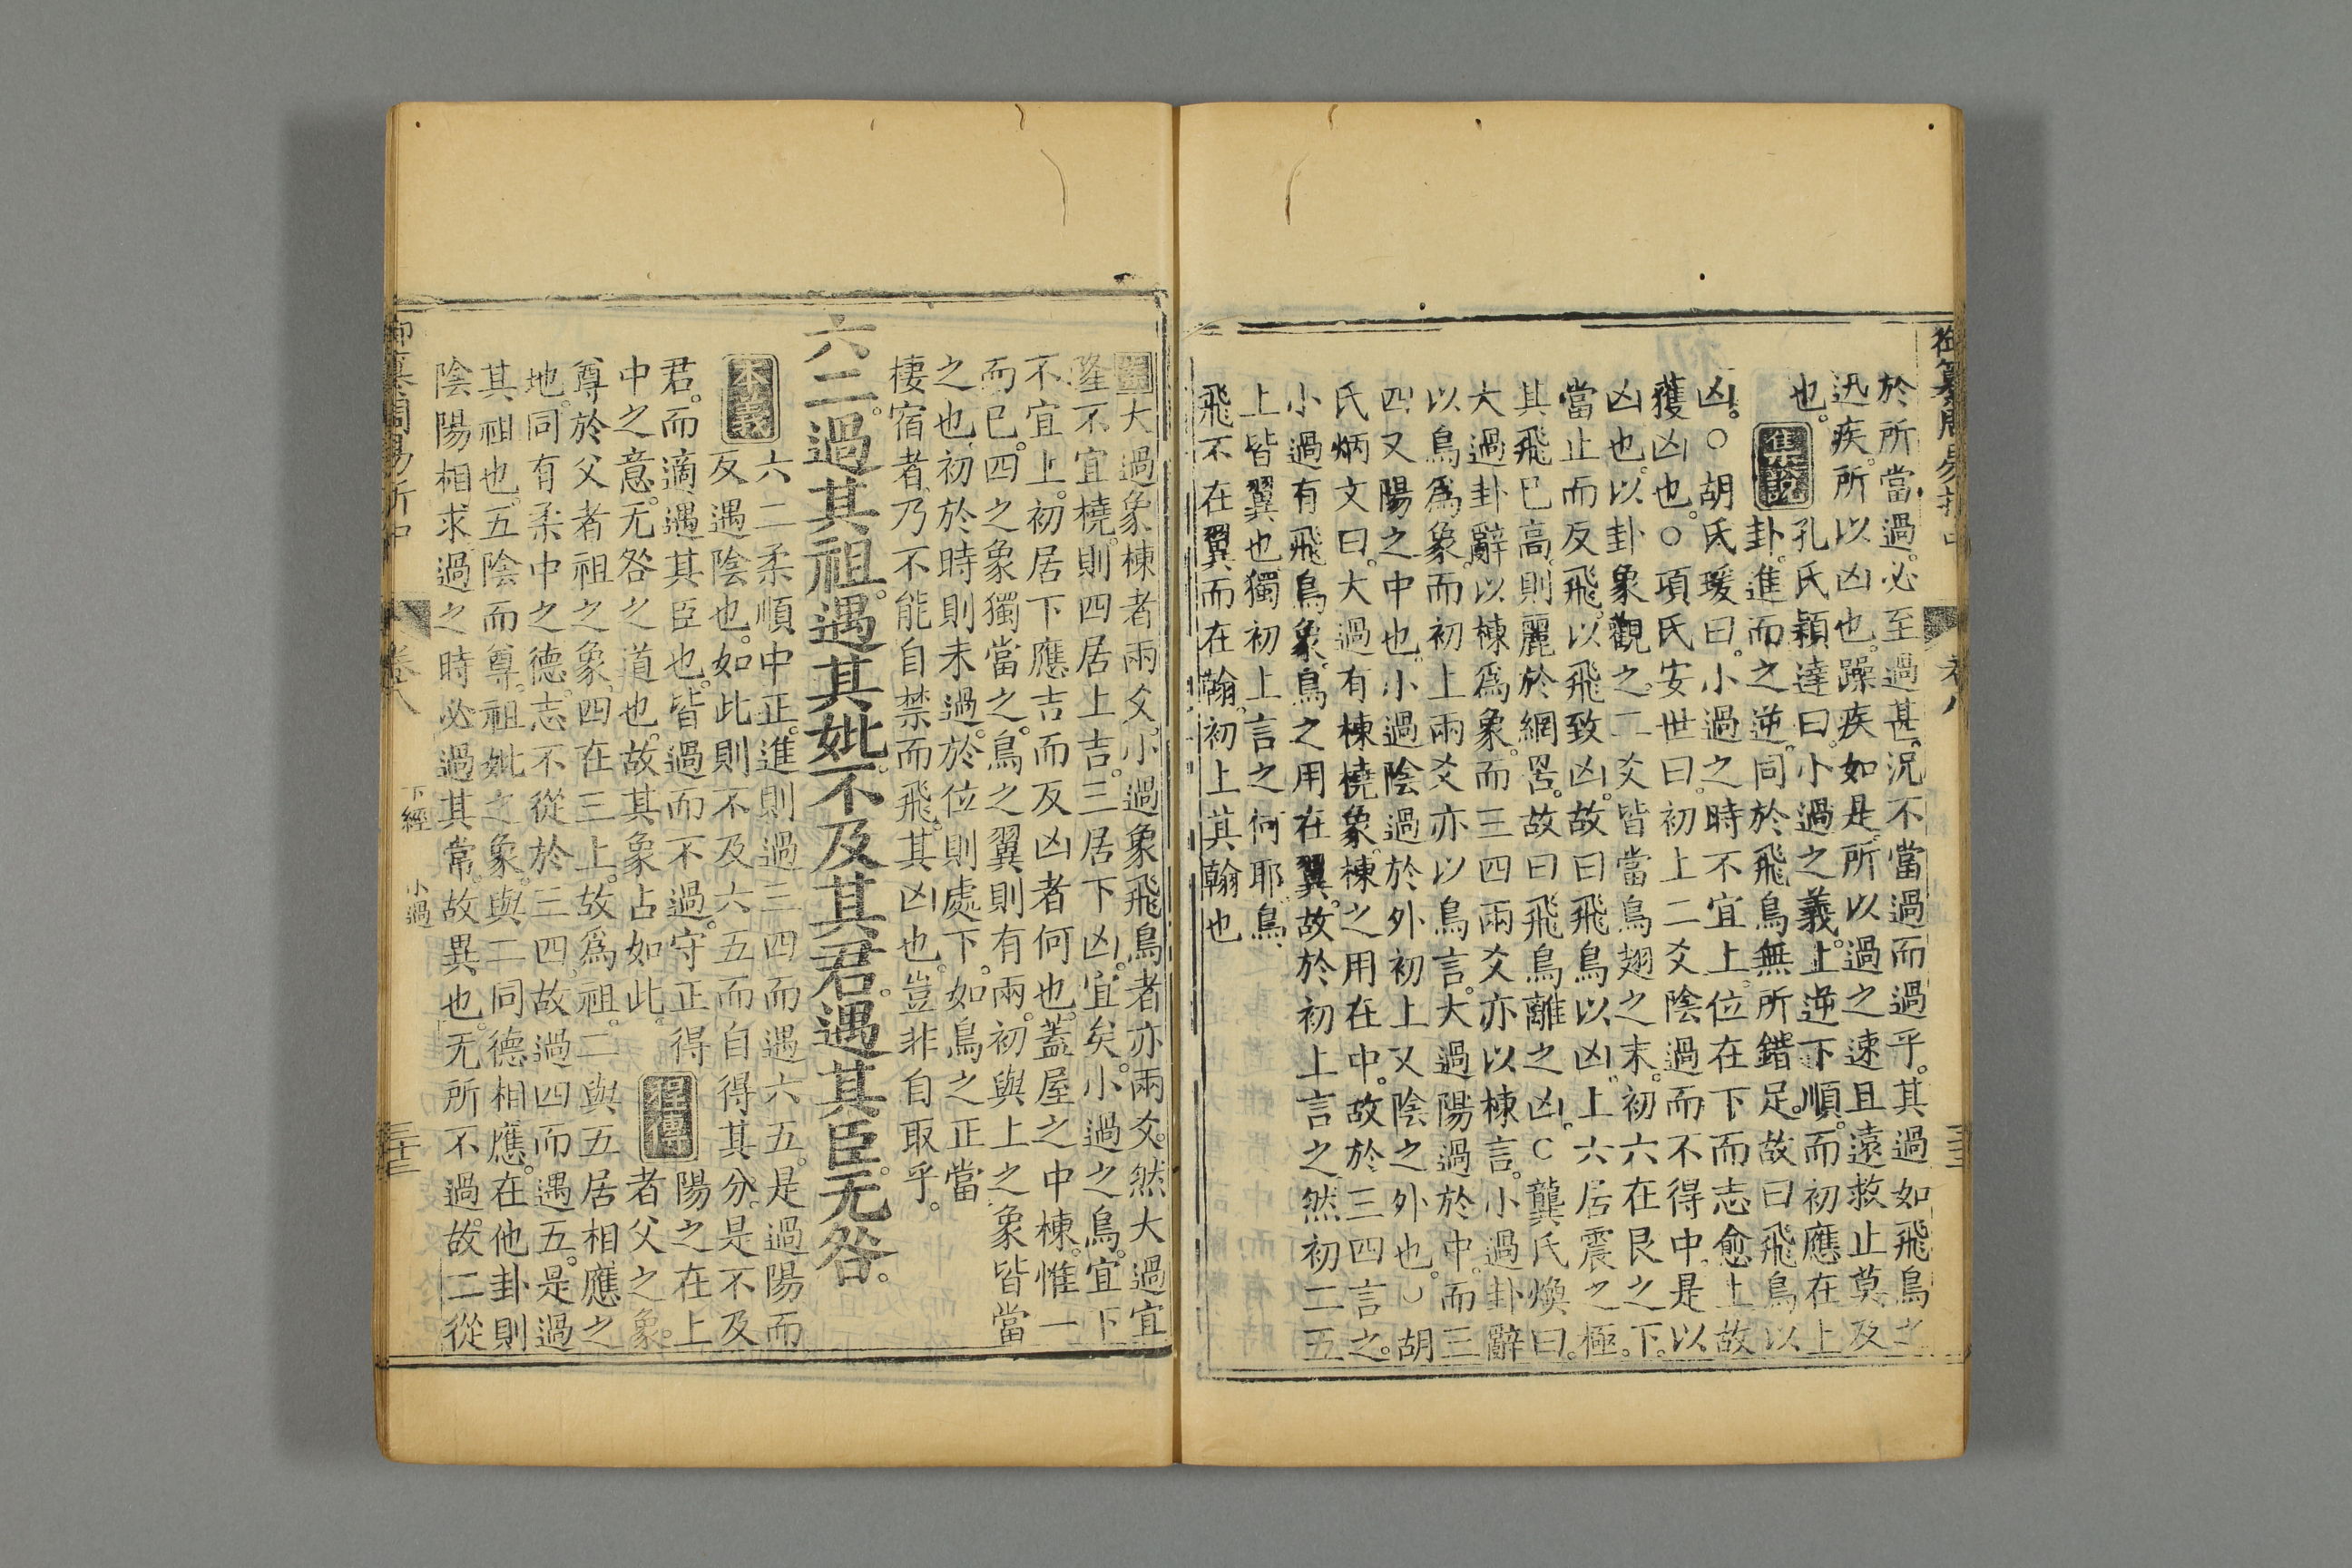 御纂周易折中
卷八
於所當過必至過甚況不當過而過乎其過如飛鳥之
迅疾所以凶也躁疾如是所以過之速且遠救止莫及
也。集說孔氏穎達曰小過之義上逆下順而初應在上
卦進而之逆同於飛鳥無所錯足故曰飛鳥以
凶。○胡氏瑗曰小過之時不宜上位在下而志愈上故
獲凶也。○項氏安世曰初上二爻陰過而不得中是以
凶也以卦象觀之二爻皆當鳥翅之末初六在艮之下。
當止而反飛以飛致凶故曰飛鳥以凶上六居震之極。
其飛已高則麗於網罟故曰飛鳥離之凶。○龔氏煥曰。
大過卦辭以棟爲象而三四兩爻亦以棟言。小過卦辭
以鳥爲象而初上兩爻亦以鳥言。大過陽過於中而三
四又陽之中也。小過陰過於外初上又陰之外也。○胡
氏炳文曰。大過有棟橈象棟之用在中。故於三四言之。
小過有飛鳥象鳥之用在翼。故於初上言之然初二五
上皆翼也獨初上言之何耶鳥
飛不在翼而在翰初上其翰也
案大過象棟者兩爻小過象飛鳥者亦兩爻然大過宜
隆不宜橈則四居上吉三居下凶宜矣小過之鳥宜下
不宜上初居下應吉而反凶者何也蓋屋之中棟惟一
而已。四之象獨當之鳥之翼則有兩初與上之象皆當
之也初於時則未過於位則處下如鳥之正當
棲宿者乃不能自禁而飛其凶也豈非自取乎。
六二。過其祖。遇其妣不及其君。遇其臣。无咎。
本義六二柔順中正進則過三四而遇六五是過陽而
反遇陰也。如此則不及六五而自得其分是不及
君。而適遇其臣也。皆過而不過。守正得
中之意。无咎之道也故其象占如此。程傳陽之在上
者父之象。
尊於父者祖之象四在三上。故爲祖。二與五居相應之
地。同有柔中之德志不從於三四。故過四而遇五。是過
其祖也。五陰而尊。祖妣之象。與二同德相應。在他卦則
陰陽相求過之時必過其常故異也。无所不過故二從
卷八
下經
小過
三十三